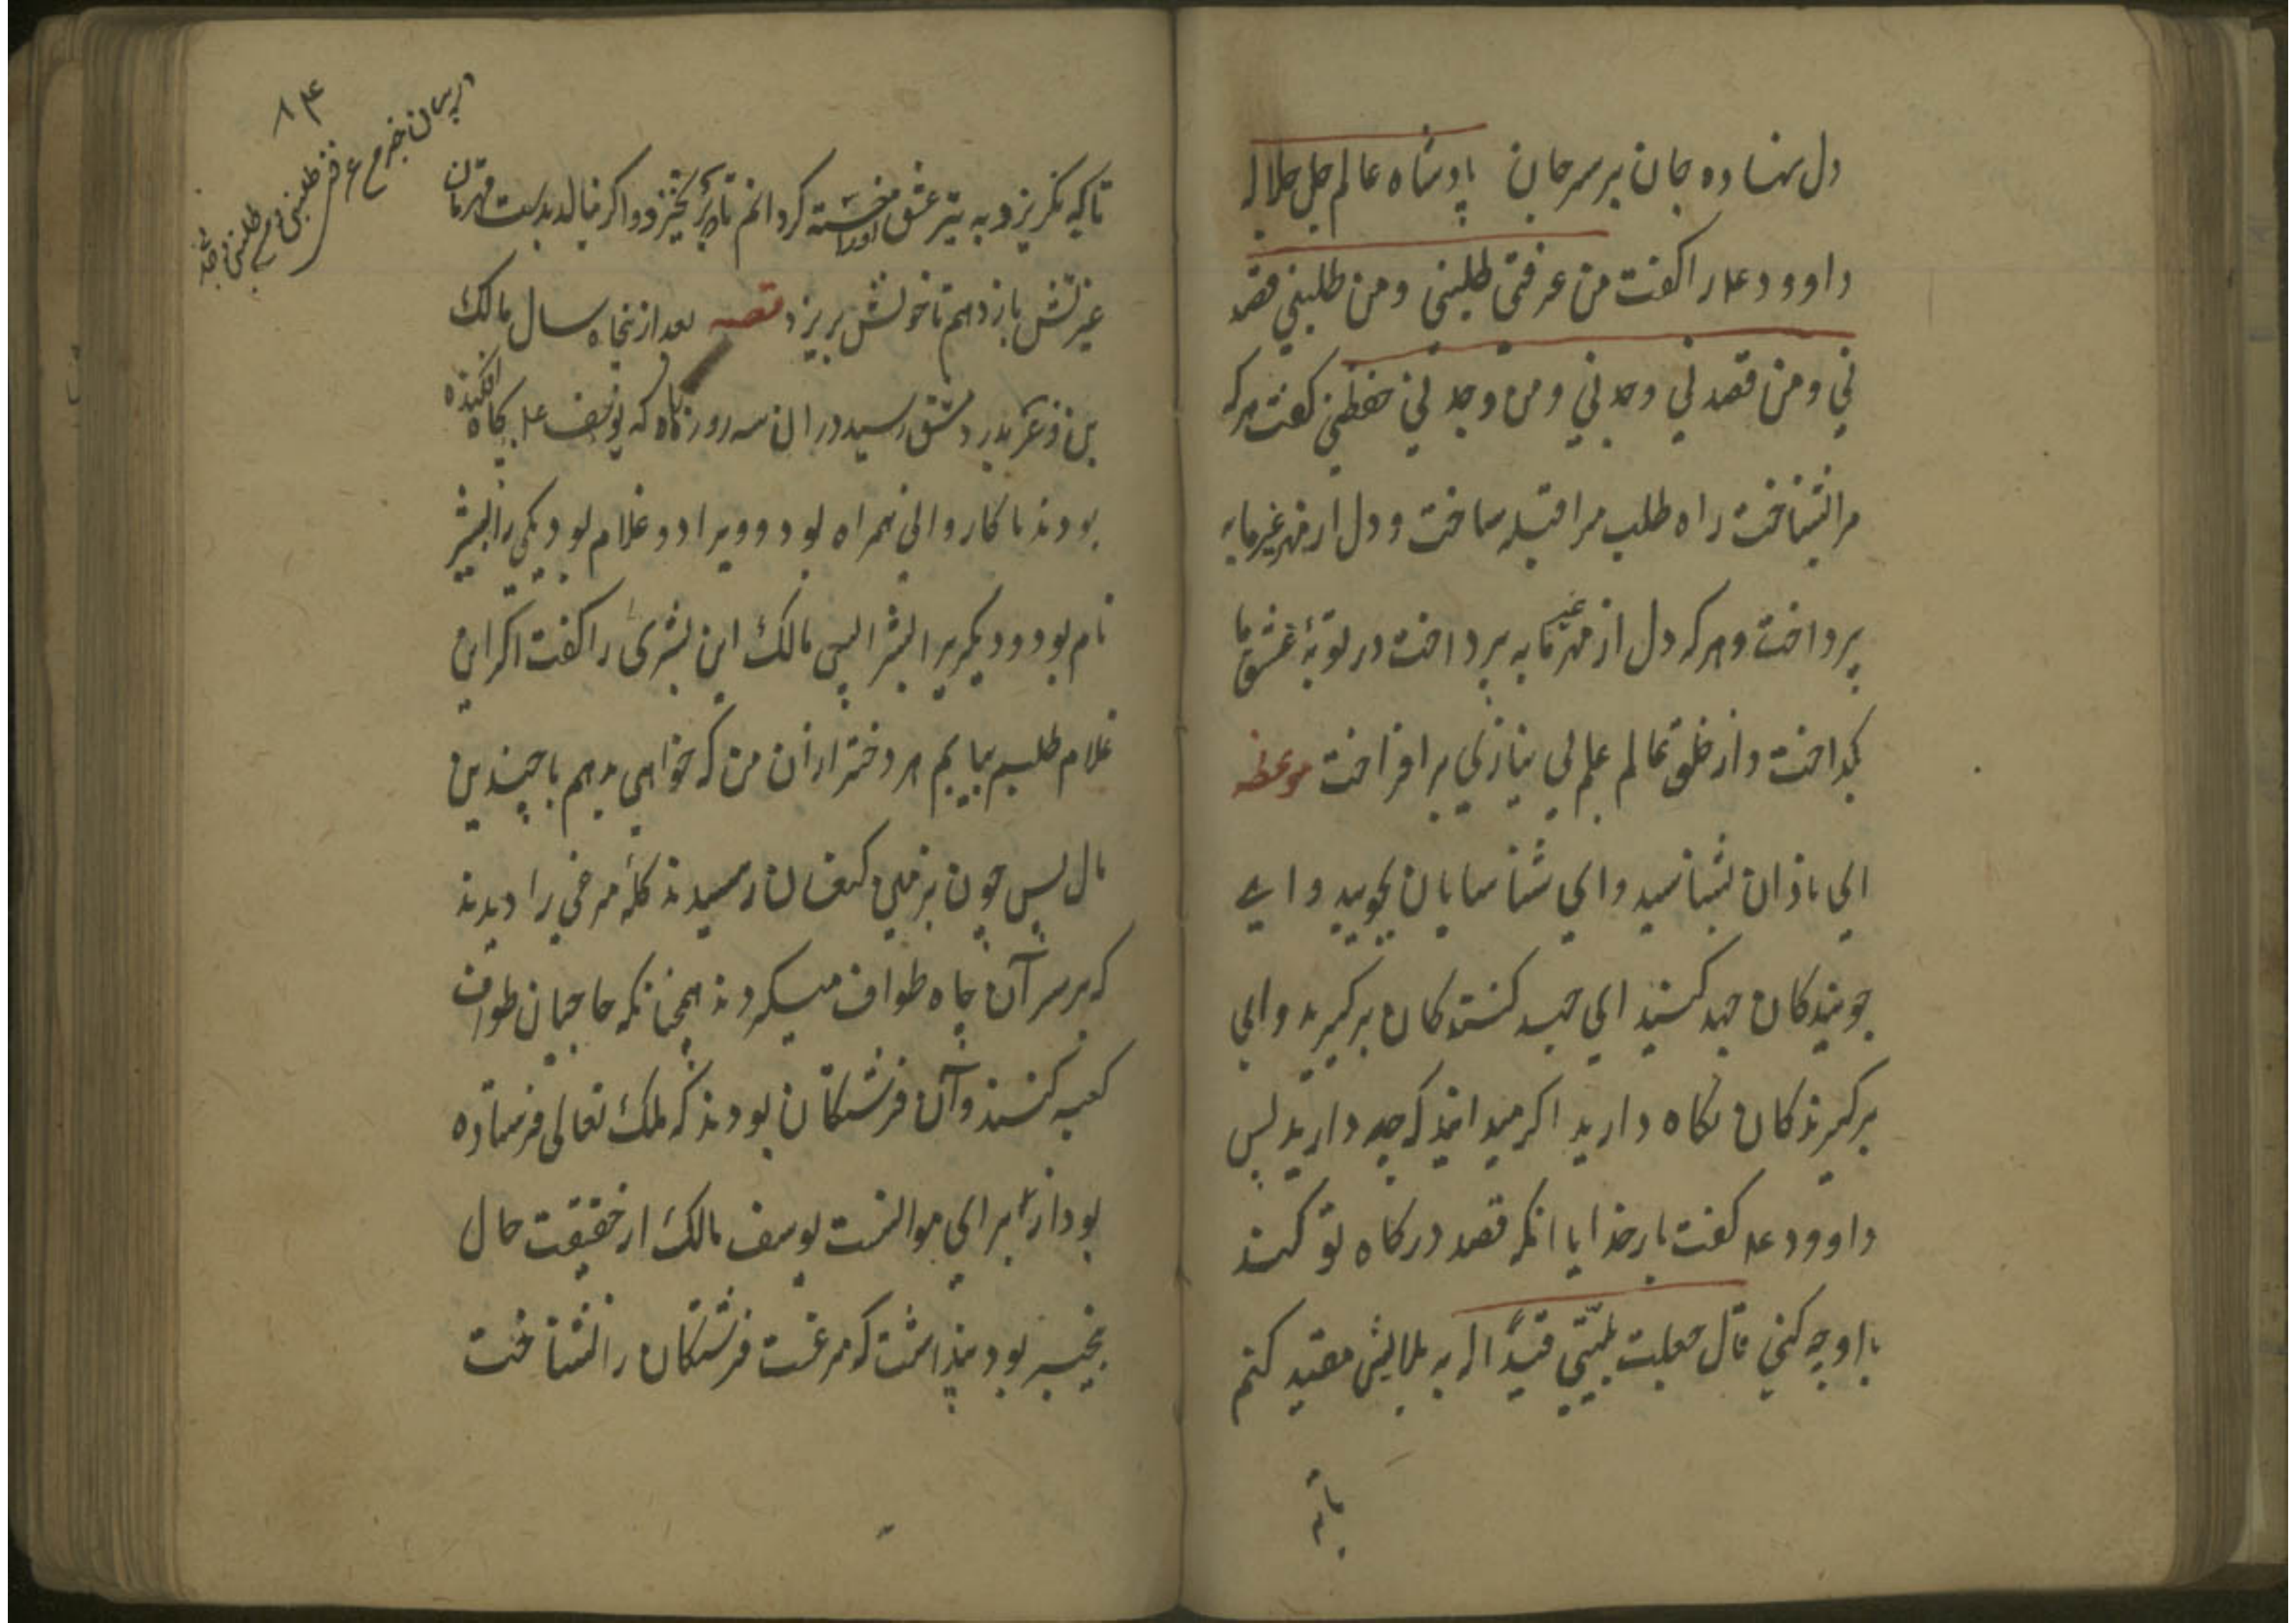 دل نهاده جان بر سر جان پادشاه عالم جل جلاله
داوود عل را کفت من عرفنی طلبنی و من طلبنی قصد
نی و من قصدنی وجدنی و من وجدنی حفظنی کفت هرکه
مرا بشناخت راه طلب مرا قبله ساخت و دل از مهر غیر مابه
پرداخت و هرکه دل از مهر غیر مابه پرداخت در بوتهٔ عشق ما
کداخت و از خلق عالم علم بی نیازی برافراخت موعظه
ای نادان بشناسید و ای شناسایان بجویید و ای
جویندکان جهد کنید ای جهد کنندکان برکیرید و ای
برکیرندکان نکاه دارید اکر میدانید که چه دارید پس
داوود عل کفت بارخدایا انکه قصد درکاه تو کند
با او چه کنی قال جعلت بلیتی قیدًا له به بلایش مقید کنم
تا که نکریزد به تیر عشق او را خسته کردانم تا بر نخیزد و اکر بنالد بدست قهرمان
غیرتش بازدهم تا خونش بریزد قصه بعد از پنجاه سال مالک
بن ذعر بدر دمشق رسید در ان سه روز ناکاه که یوسف عل بچاه افکنده
بودند با کاروانی همراه بود و ویرا دو غلام بود یکی را بشر
نام بود و دیکریرا بشرا پس مالک این بشری را کفت اکر این
غلام طلبیم بیابیم هر دختر از ان من که خواهی بدهم با چندین
مال پس چون بزمین کنعان رسیدند کلهٔ مرغی را دیدند
که بر سر آن چاه طواف میکردند همچنانکه حاجیان طواف
کعبه کنند و آن فرشتکان بودند که ملک تعالی فرستاده
بود از برای موانست یوسف مالک از حقیقت حال
بیخبر بود پنداشت که مرغست فرشتکان را نشناخت